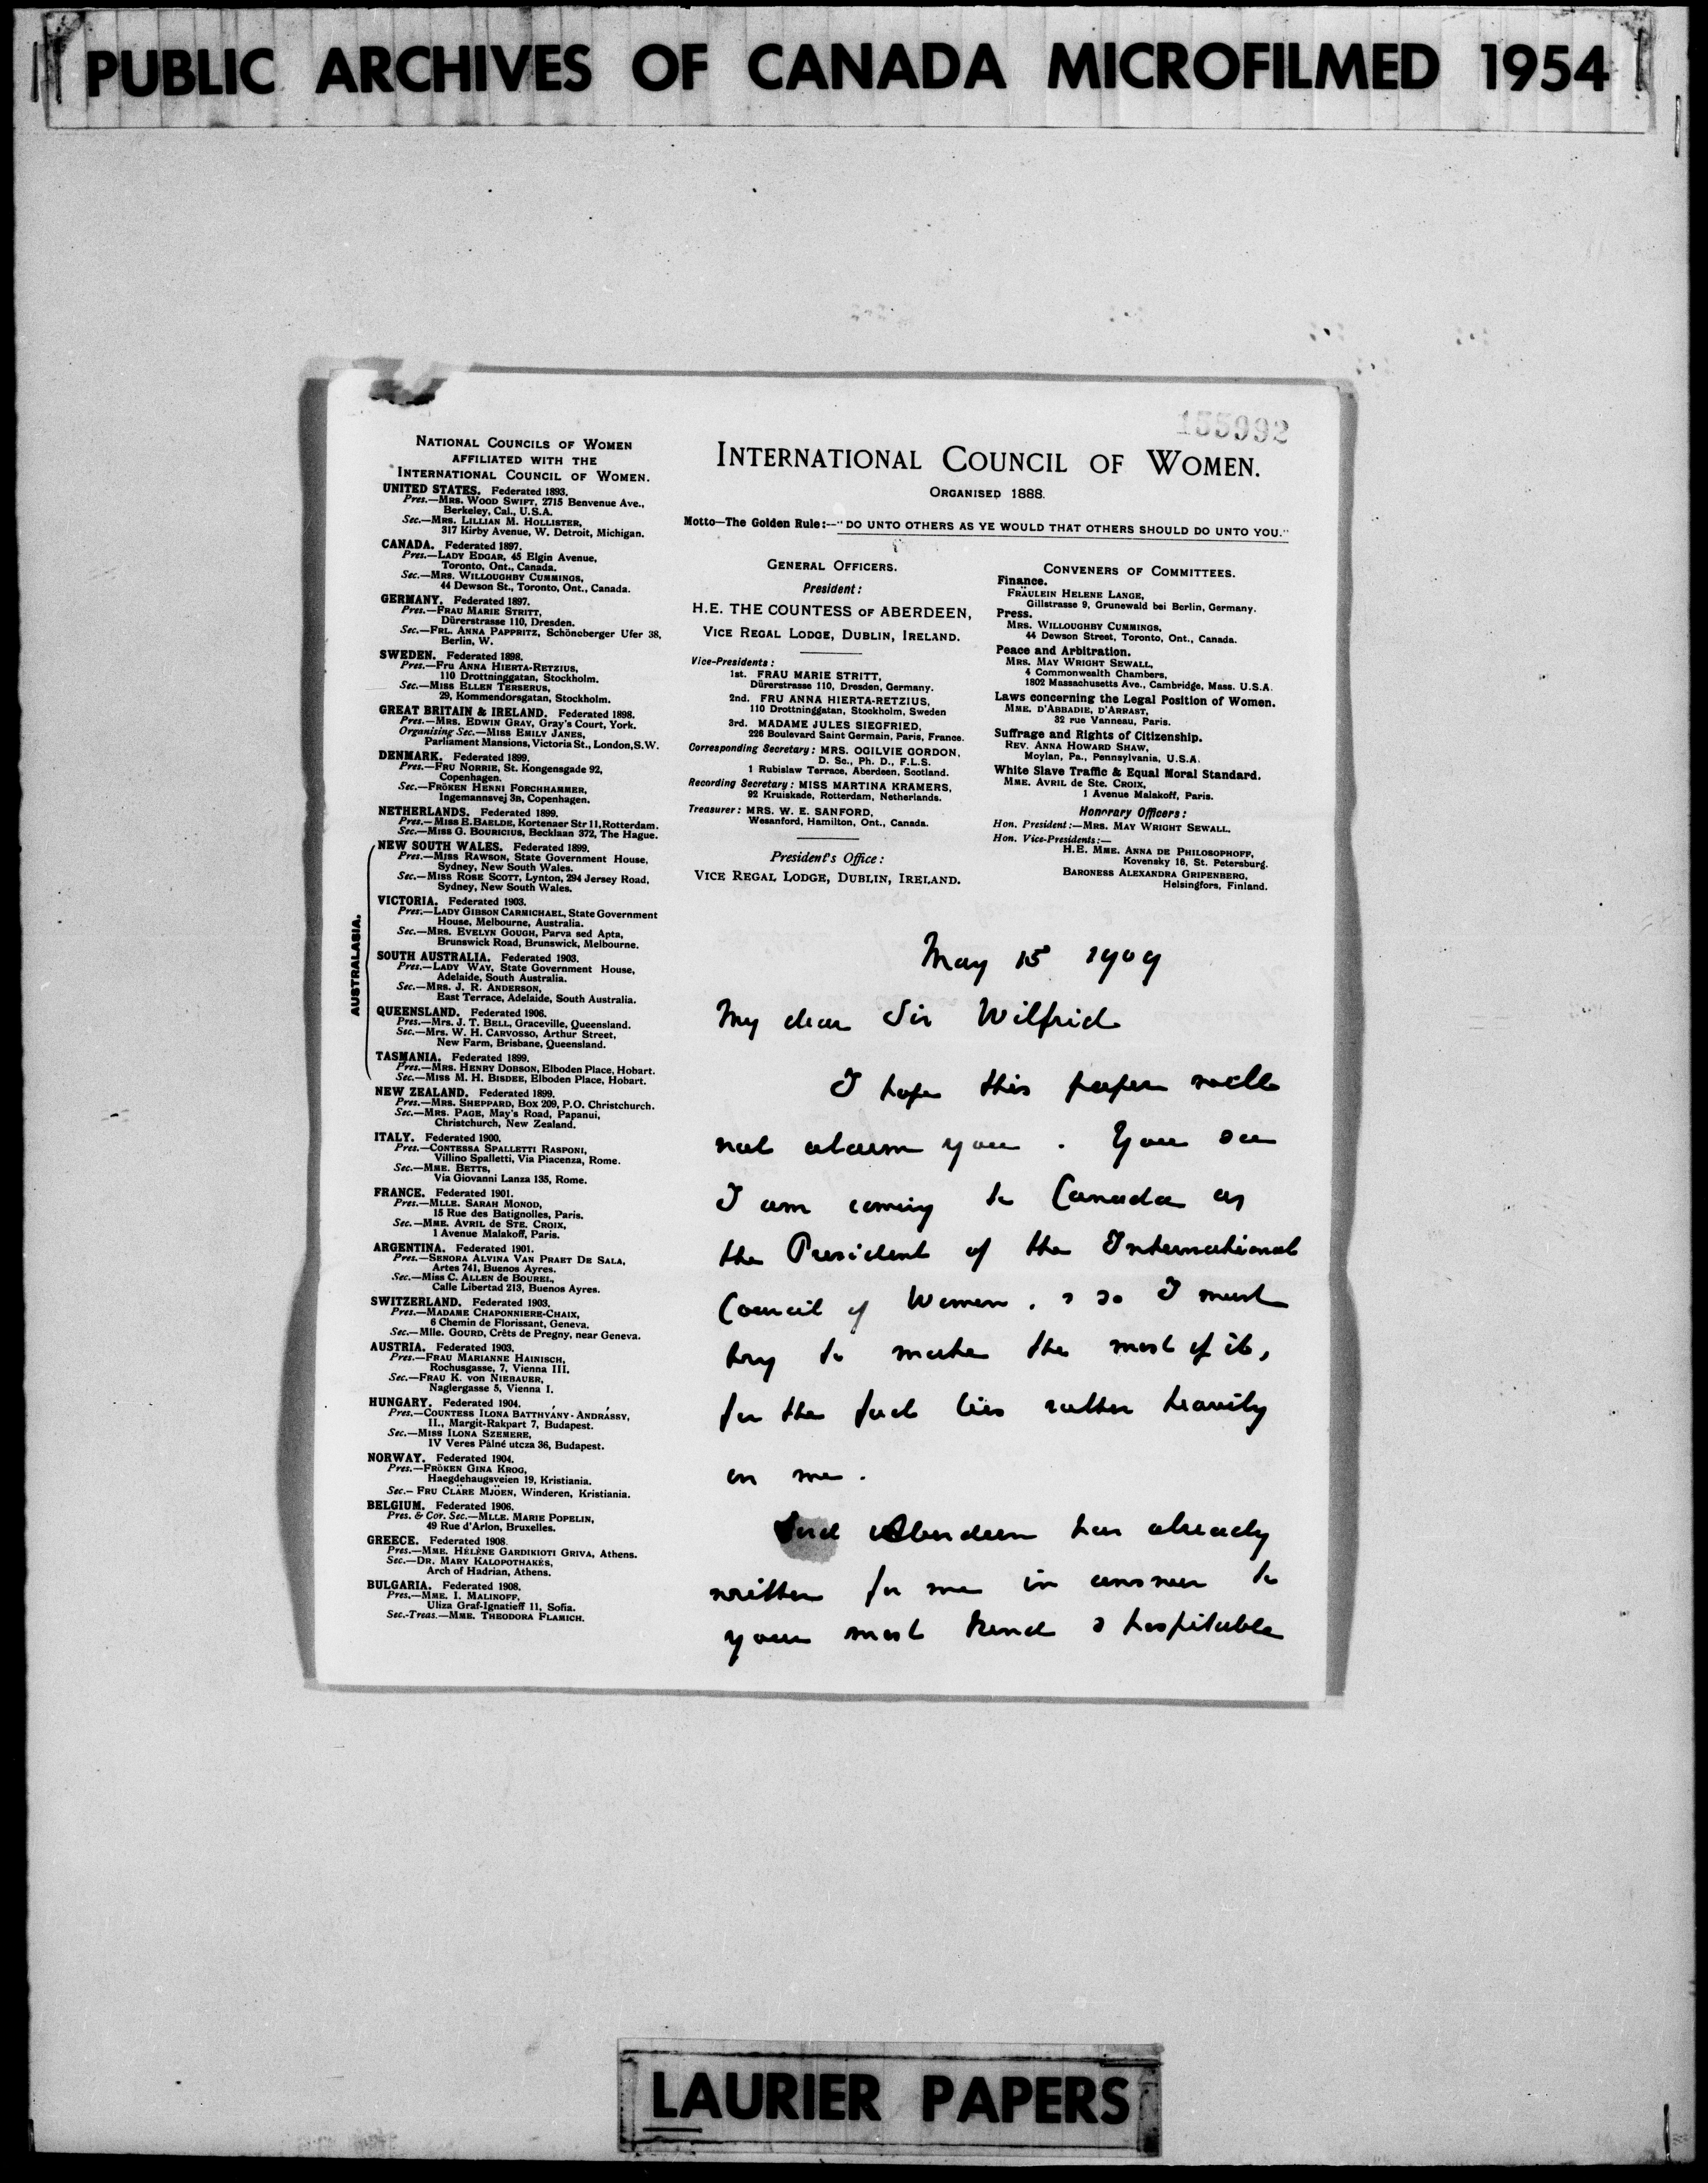 PUBLIC ARCHIVES OF CANADA MICROFILMED 1954
155992
NATIONAL COUNCILS OF WOMEN
AFFILIATED WITH THE
INTERNATIONAL COUNCIL OF WOMEN.
UNITED STATES. Federated 1893.
Pres.—MRS. WOOD SWIFT, 2715 Benvenue Ave.,
Berkeley, Cal., U.S.A.
Sec.—MRS. LILLIAN M. HOLLISTER,
317 Kirby Avenue, W. Detroit, Michigan.
CANADA. Federated 1897.
Pres.—LADY EDGAR, 45 Elgin Avenue,
Toronto, Ont., Canada.
Sec.—MRS. WILLOUGHBY CUMMINGS,
44 Dewson St., Toronto, Ont., Canada.
GERMANY. Federated 1897.
Pres.—FRAU MARIE STRITT,
Dürerstrasse 110, Dresden.
Sec.—FRL. ANNA PAPPRITZ, Schöneberger Ufer 38,
Berlin, W.
SWEDEN. Federated 1898.
Pres.—Fru ANNA HIERTA-RETZIUS,
110 Drottninggatan, Stockholm.
Sec.—MISS ELLEN TERSERUS,
29, Kommendorsgatan, Stockholm.
GREAT BRITAIN & IRELAND. Federated 1898.
Pres.—MRS. EDWIN GRAY, Gray's Court, York.
Organising Sec.—MISS EMILY JANES,
Parliament Mansions, Victoria St., London, S.W.
DENMARK. Federated 1899.
Pres.—FRU NORRIE, St. Kongensgade 92,
Copenhagen.
Sec.—FRÖKEN HENNI FORCHHAMMER,
Ingemannsvej 3B, Copenhagen.
NETHERLANDS. Federated 1899.
Pres.—MISS E. BAELDE, Kortenaer Str 11, Rotterdam.
Sec.—MISS G. BOURICIUS, Becklaan 372, The Hague.
AUSTRALASIA.
NEW SOUTH WALES. Federated 1899.
Pres.—MISS RAWSON, State Government House,
Sydney, New South Wales.
Sec.—MISS ROSE SCOTT, Lynton, 294 Jersey Road,
Sydney, New South Wales.
VICTORIA. Federated 1903.
Pres.—LADY GIBSON CARMICHAEL, State Government
House, Melbourne, Australia.
Sec.—MRS. EVELYN GOUGH, Parva sed Apta,
Brunswick Road, Brunswick, Melbourne.
SOUTH AUSTRALIA. Federated 1903.
Pres.—LADY WAY, State Government House,
Adelaide, South Australia.
Sec.—MRS. J. R. ANDERSON,
East Terrace, Adelaide, South Australia.
QUEENSLAND. Federated 1906.
Pres.—Mrs. J. T. BELL, Graceville, Queensland.
Sec.—Mrs. W. H. CARVOSSO, Arthur Street,
New Farm, Brisbane, Queensland.
TASMANIA. Federated 1899.
Pres.—MRS. HENRY DOBSON, Elboden Place, Hobart.
Sec.—MISS M. H. BISDEE, Elboden Place, Hobart.
NEW ZEALAND. Federated 1899.
Pres.—MRS. SHEPPARD, Box 209, P.O. Christchurch.
Sec.—MRS. PAGE, May's Road, Papanui,
Christchurch, New Zealand.
ITALY. Federated 1900.
Pres.—CONTESSA SPALLETTI RASPONI,
Villino Spalletti, Via Piacenza, Rome.
Sec.—MME. BETTS,
Via Giovanni Lanza 135, Rome.
FRANCE. Federated 1901.
Pres.—MLLE. SARAH MONOD,
15 Rue des Batignolles, Paris.
Sec.—MME. AVRIL de STE. CROIX,
1 Avenue Malakoff, Paris.
ARGENTINA. Federated 1901.
Pres.—SENORA ALVINA VAN PRAET DE SALA,
Artes 741, Buenos Ayres.
Sec.—Miss C. ALLEN de BOUREL,
Calle Libertad 213, Buenos Ayres.
SWITZERLAND. Federated 1903.
Pres.—MADAME CHAPONNIERE-CHAIX,
6 Chemin de Florissant, Geneva.
Sec.—Mlle. GOURD, Crêts de Pregny, near Geneva.
AUSTRIA. Federated 1903.
Pres.—FRAU MARIANNE HAINISCH,
Rochusgasse, 7, Vienna III.
Sec.—FRAU K. von NIEBAUER,
Naglergasse 5, Vienna I.
HUNGARY. Federated 1904.
Pres.—COUNTESS ILONA BATTHYÁNY-ANDRÁSSY,
II., Margit-Rakpart 7, Budapest.
Sec.—MISS ILONA SZEMERE,
IV Veres Pálné utcza 36, Budapest.
NORWAY. Federated 1904.
Pres.—FRÖKEN GINA KROG,
Haegdehaugsveien 19, Kristiania.
Sec.—FRU CLÄRE MJÖEN, Winderen, Kristiania.
BELGIUM. Federated 1906.
Pres. & Cor. Sec.—MLLE. MARIE POPELIN,
49 Rue d'Arlon, Bruxelles.
GREECE. Federated 1908.
Pres.—MME. HÉLÈNE GARDIKIOTI GRIVA, Athens.
Sec.—DR. MARY KALOPOTHAKÉS,
Arch of Hadrian, Athens.
BULGARIA. Federated 1908.
Pres.—MME. I. MALINOFF,
Uliza Graf-Ignatieff 11, Sofia.
Sec.-Treas.—MME. THEODORA FLAMICH.
INTERNATIONAL COUNCIL OF WOMEN.
ORGANISED 1888.
Motto—The Golden Rule:—"DO UNTO OTHERS AS YE WOULD THAT OTHERS SHOULD DO UNTO YOU."
GENERAL OFFICERS.
President:
H.E. THE COUNTESS OF ABERDEEN,
VICE REGAL LODGE, DUBLIN, IRELAND.
Vice-Presidents:
1st. FRAU MARIE STRITT,
Dürerstrasse 110, Dresden, Germany.
2nd. FRU ANNA HIERTA-RETZIUS,
110 Drottninggatan, Stockholm, Sweden
3rd. MADAME JULES SIEGFRIED,
226 Boulevard Saint Germain, Paris, France.
Corresponding Secretary: MRS. OGILVIE GORDON,
D. Sc., Ph. D., F.L.S.
1 Rubislaw Terrace, Aberdeen, Scotland.
Recording Secretary: MISS MARTINA KRAMERS,
92 Kruiskade, Rotterdam, Netherlands.
Treasurer: MRS. W. E. SANFORD,
Wesanford, Hamilton, Ont., Canada.
President's Office:
VICE REGAL LODGE, DUBLIN, IRELAND.
CONVENERS OF COMMITTEES.
Finance.
FRÄULEIN HELENE LANGE,
Gillstrasse 9, Grunewald bei Berlin, Germany.
Press.
MRS. WILLOUGHBY CUMMINGS,
44 Dewson Street, Toronto, Ont., Canada.
Peace and Arbitration.
MRS. MAY WRIGHT SEWALL,
4 Commonwealth Chambers,
1802 Massachusetts Ave., Cambridge, Mass. U.S.A.
Laws concerning the Legal Position of Women.
MME. D'ABBADIE, D'ARRAST,
32 rue Vanneau, Paris.
Suffrage and Rights of Citizenship.
REV. ANNA HOWARD SHAW,
Moylan, Pa., Pennsylvania, U.S.A.
White Slave Traffic & Equal Moral Standard.
MME. AVRIL de STE. CROIX,
1 Avenue Malakoff, Paris.
Honorary Officers:
Hon. President:—MRS. MAY WRIGHT SEWALL.
Hon. Vice-Presidents:—
H.E. MME. ANNA DE PHILOSOPHOFF,
Kovensky 16, St. Petersburg.
BARONESS ALEXANDRA GRIPENBERG,
Helsingfors, Finland.
May 15 1909
My dear Sir Wilfrid
I hope this paper will
not alarm you. You see
I am coming to Canada as
the President of the International
Council of Women, & so I must
try to make the most of it,
for the fact lies rather heavily
on me.
Lord Aberdeen has already
written for me in answer to
your most kind & hospitable
LAURIER PAPERS